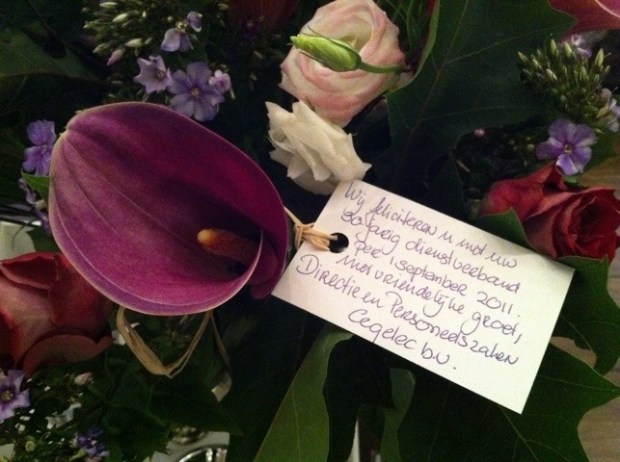 Wij feliciteren u met uw
20 jarig dienstverband
per 1 september 2011.
Met vriendelijke groet,
Directie en Personeelszaken
Cegelec bv.